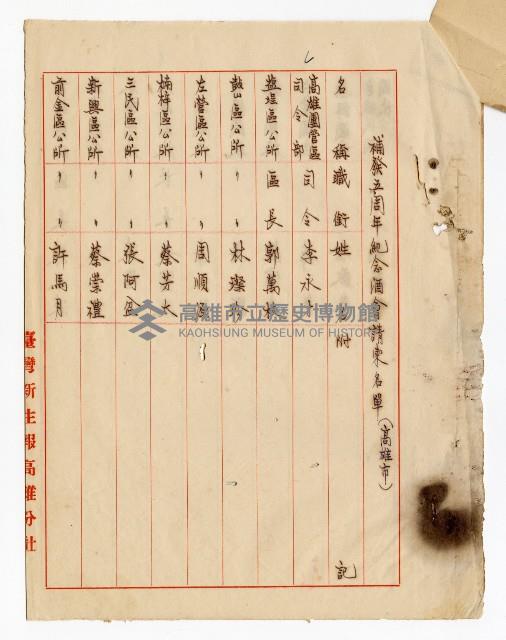 補發五周年紀念酒會請柬名單(高雄市)
名稱 職銜 姓 附記
高雄團管區司令部 司令 李永
鹽埕區公所 區長 郭萬
鼓山區公所 〃 〃 林燦
左營區公所 〃 〃 周順
楠梓區公所 〃 〃 蔡芳太
三民區公所 〃 〃 張阿盈
新興區公所 〃 〃 蔡崇禮
前金區公所 〃 〃 許馬月
臺灣新生報高雄分社
高雄市立歷史博物館
KAOHSIUNG MUSEUM OF HISTORY